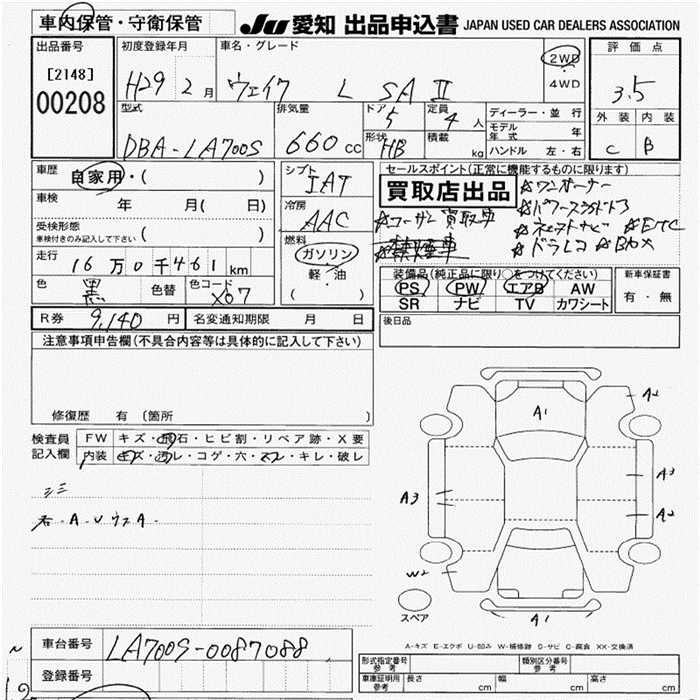 車内保管・守衛保管
JU 愛知 出品申込書 JAPAN USED CAR DEALERS ASSOCIATION
出品番号
[2148]
00208
初度登録年月
H29 2 月
車名・グレード
ウェイク L SA II
2WD
・
4WD
評価点
3.5
外装 内装
C B
型式
DBA-LA700S
排気量
660 cc
ドア
5
形状
HB
定員
4 人
積載
kg
ディーラー・並行
モデル年式 年
ハンドル 左・右
車歴
自家用・( )
車検 年 月( 日)
受検形態
車検付きのみ記入して下さい ( )
走行
16 万 0 千 461 km
色
黒
色替
色コード
X07
シフト
IAT
冷房
AAC
燃料
ガソリン
軽・油
( )
セールスポイント(正常に機能するものに限ります)
買取店出品
☆ワンオーナー
☆ユーザー買取車
☆禁煙車
☆ナビ ☆ETC
☆ドラレコ
装備品(純正品に限り○をつけてください)
PS PW エアB AW
SR ナビ TV カワシート
新車保証書
有・無
R券 9,140 円
名変通知期限 月 日
後日品
注意事項申告欄(不具合内容等は具体的に記入して下さい)
修復歴 有 (箇所 )
検査員
記入欄
FW キズ・飛石・ヒビ割・リペア跡・X要
内装 キズ・汚レ・コゲ・穴・スレ・キレ・破レ
シミ
A1
A2
A3
A3
A2
W2
スペア
A1
A-キズ E-エクボ U-凹み W-補修跡 S-サビ C-腐食 XX-交換済
車台番号
LA700S-0087088
登録番号
形式指定番号
参考
類別区分番号
参考
車庫証明用
参考
長さ cm 幅 cm 高さ cm